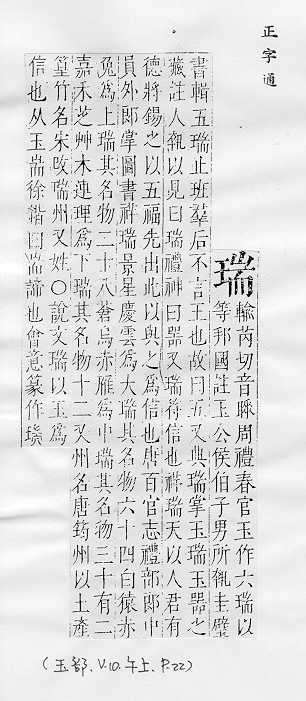 正字通
瑞
輸芮切音睡周禮春官玉作六瑞以
等邦國註王公侯伯子男所執圭璧
書輯五瑞止班羣后不言王也故曰五又典瑞掌玉瑞玉器之
藏註人執以見曰瑞禮神曰器又瑞符信也祥瑞天以人君有
德將錫之以五福先出此以與之爲信也唐百官志禮部郎中
員外郎掌圖書祥瑞景星慶雲爲大瑞其名物六十四白猿赤
兔爲上瑞其名物二十八蒼烏赤雁爲中瑞其名物三十有二
嘉禾芝艸木連理爲下瑞其名物十二又州名唐筠州以土產
篁竹名宋改瑞州又姓○說文瑞以玉爲
信也从玉耑徐鍇曰耑諦也會意篆作
(玉部.V.10.午上.P.22)